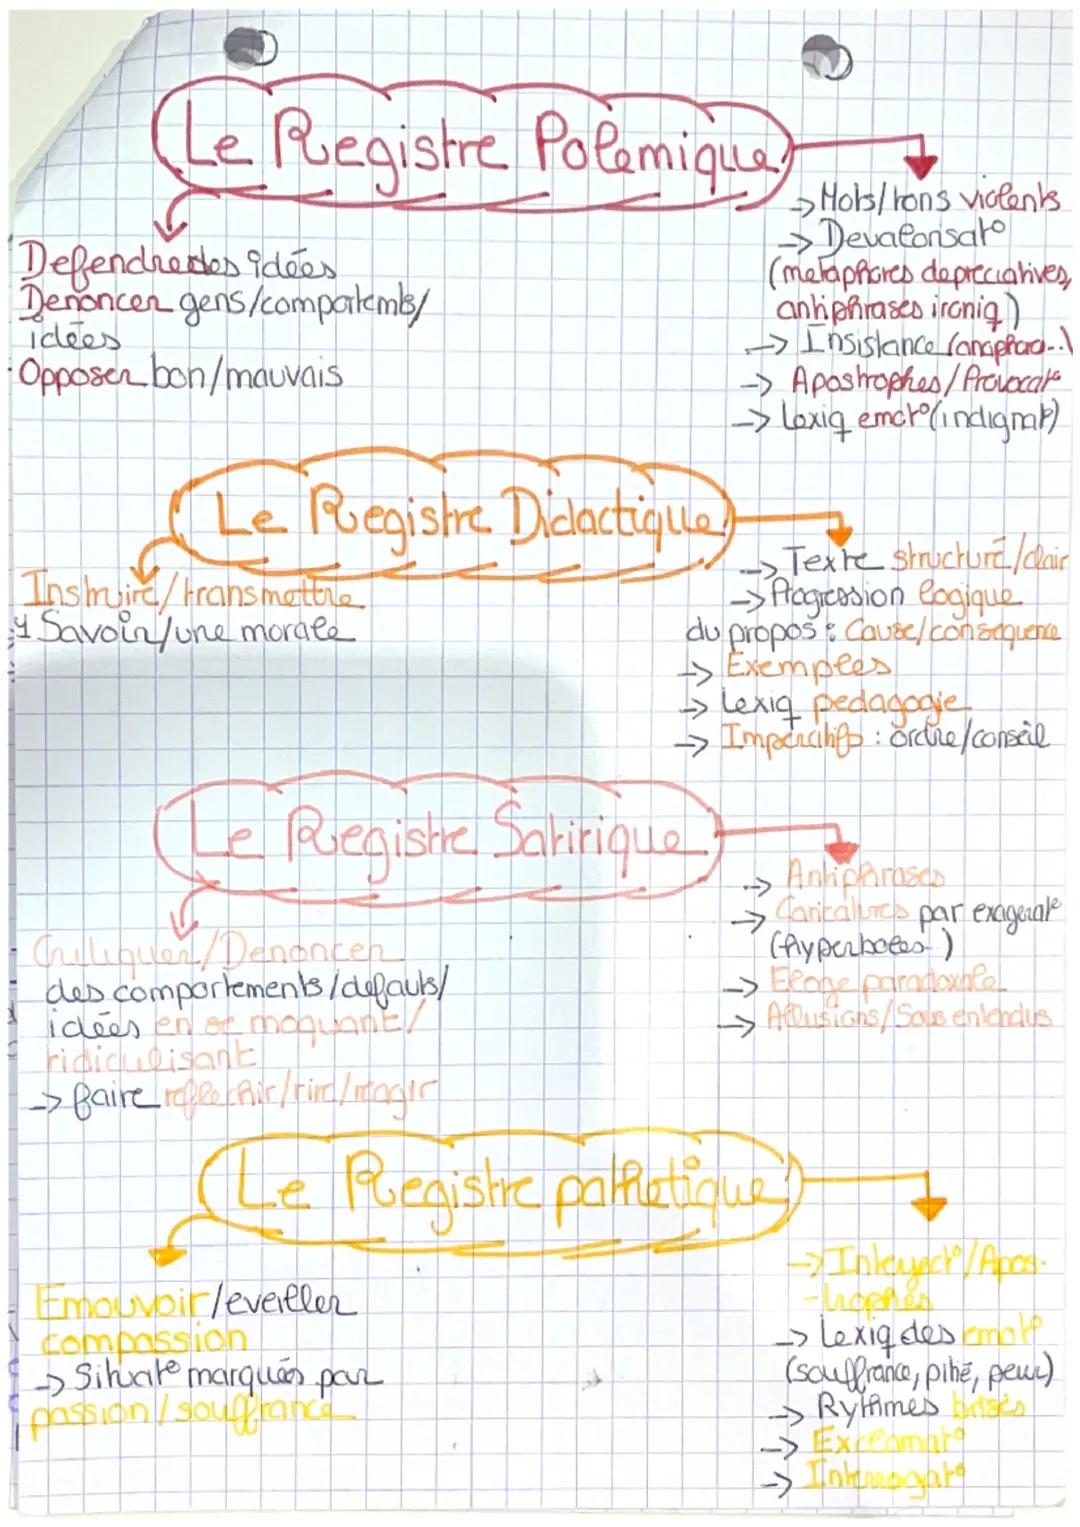 Le Registre Polemique
Defendre des idées
Denoncer gens/comportemts/
idées
Opposer bon/mauvais
-> Mots/tons violents
-> Devalorisat°
(metaphores depreciatives,
antiphrases ironiq)
-> Insistance (anaphor...)
-> Apostrophes/Provocat°
-> Lexiq emot° (indignat°)
Le Registre Didactique
Instruire/transmettre
1 Savoir/une morale
-> Texte structuré/clair
-> Progression logique
du propos : Cause/consequence
-> Exemples
-> Lexiq pedagogie
-> Imperatifs : ordre/conseil
Le Registre Satirique
Critiquer/Denoncer
des comportements/defauts/
idées en se moquant/
ridiculisant
-> faire reflechir/rire/reagir
-> Antiphrases
-> Caricatures par exagerat°
(hyperboles..)
-> Eloge paradoxale
-> Allusions/Sous entendus
Le Registre pathetique
Emouvoir/eveiller
compassion
-> Situat° marqués par
passion/souffrance
-> Interject°/Apos-
-trophes
-> Lexiq des emot°
(souffrance, pitié, peur)
-> Rythmes brisés
-> Exclamat°
-> Interrogat°